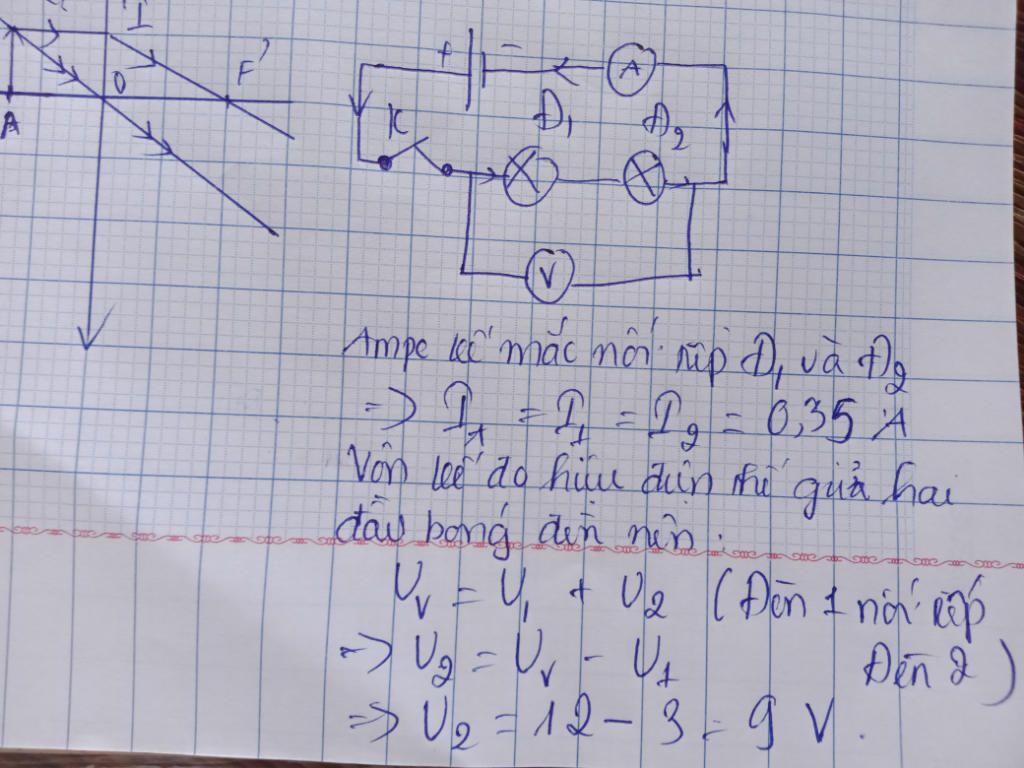 I
F'
O
A
+ -
A
K
Đ₁ Đ₂
V
Ampe kế mắc nối tiếp Đ₁ và Đ₂
=> I_A = I₁ = I₂ = 0,35 A
Vôn kế đo hiệu điện thế giữa hai
đầu bóng đèn nên:
U_V = U₁ + U₂ (Đèn 1 nối tiếp
=> U₂ = U_V - U₁ Đèn 2)
=> U₂ = 12 - 3 = 9 V.